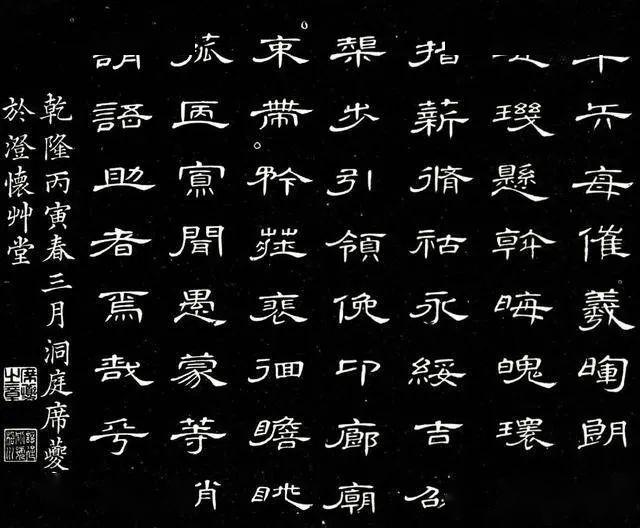 年矢每催羲暉朗
璣懸斡晦魄環
指薪脩祜永綏吉劭
榘步引領俛卬廊廟
束帶矜莊裵徊瞻眺
孤陋寡聞愚蒙等肖
謂語助者焉哉乎
乾隆丙寅春三月洞庭席夔
於澄懷艸堂
席夔之章